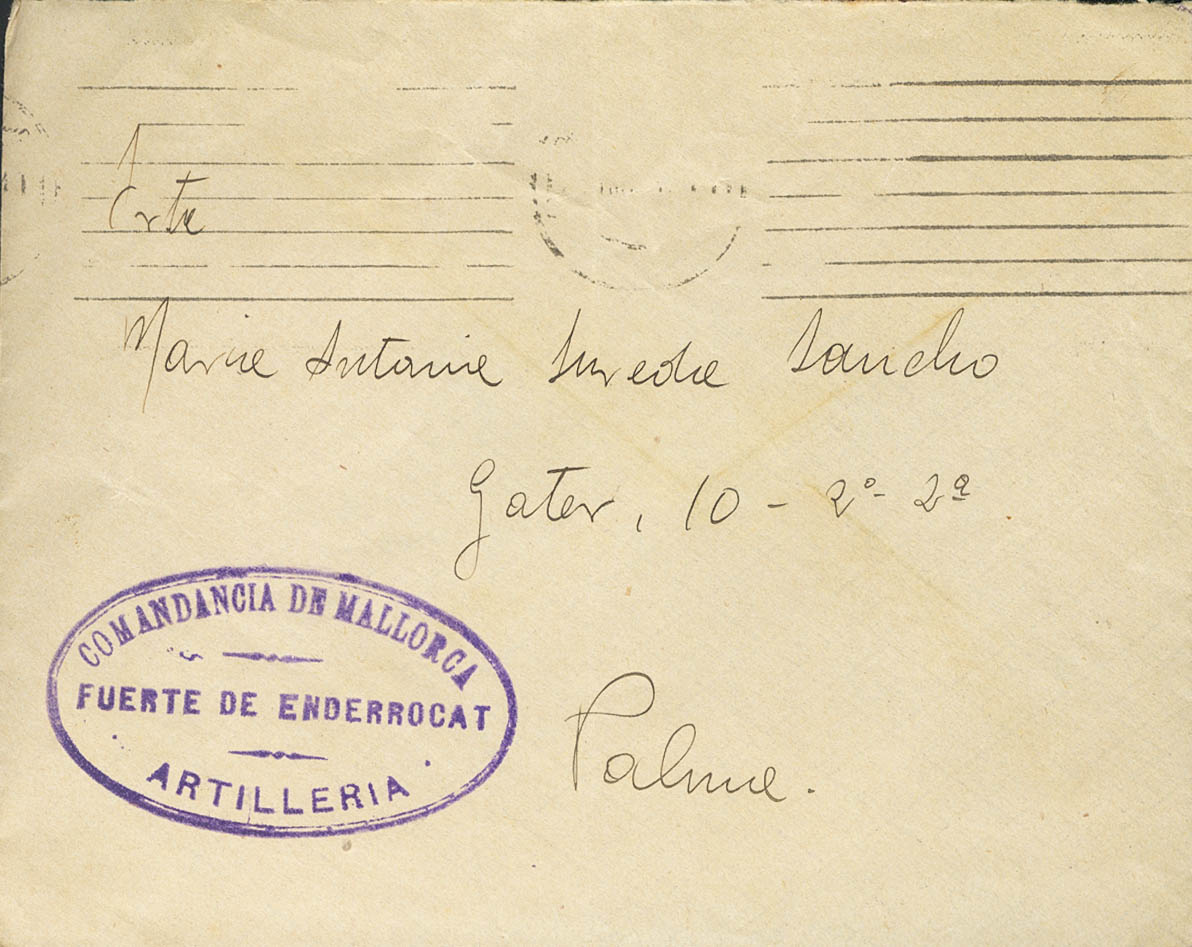 Maria Antonia Sureda Sancho
Gater, 10 - 2º- 2ª
COMANDANCIA DE MALLORCA
FUERTE DE ENDERROCAT
ARTILLERIA
Palma.